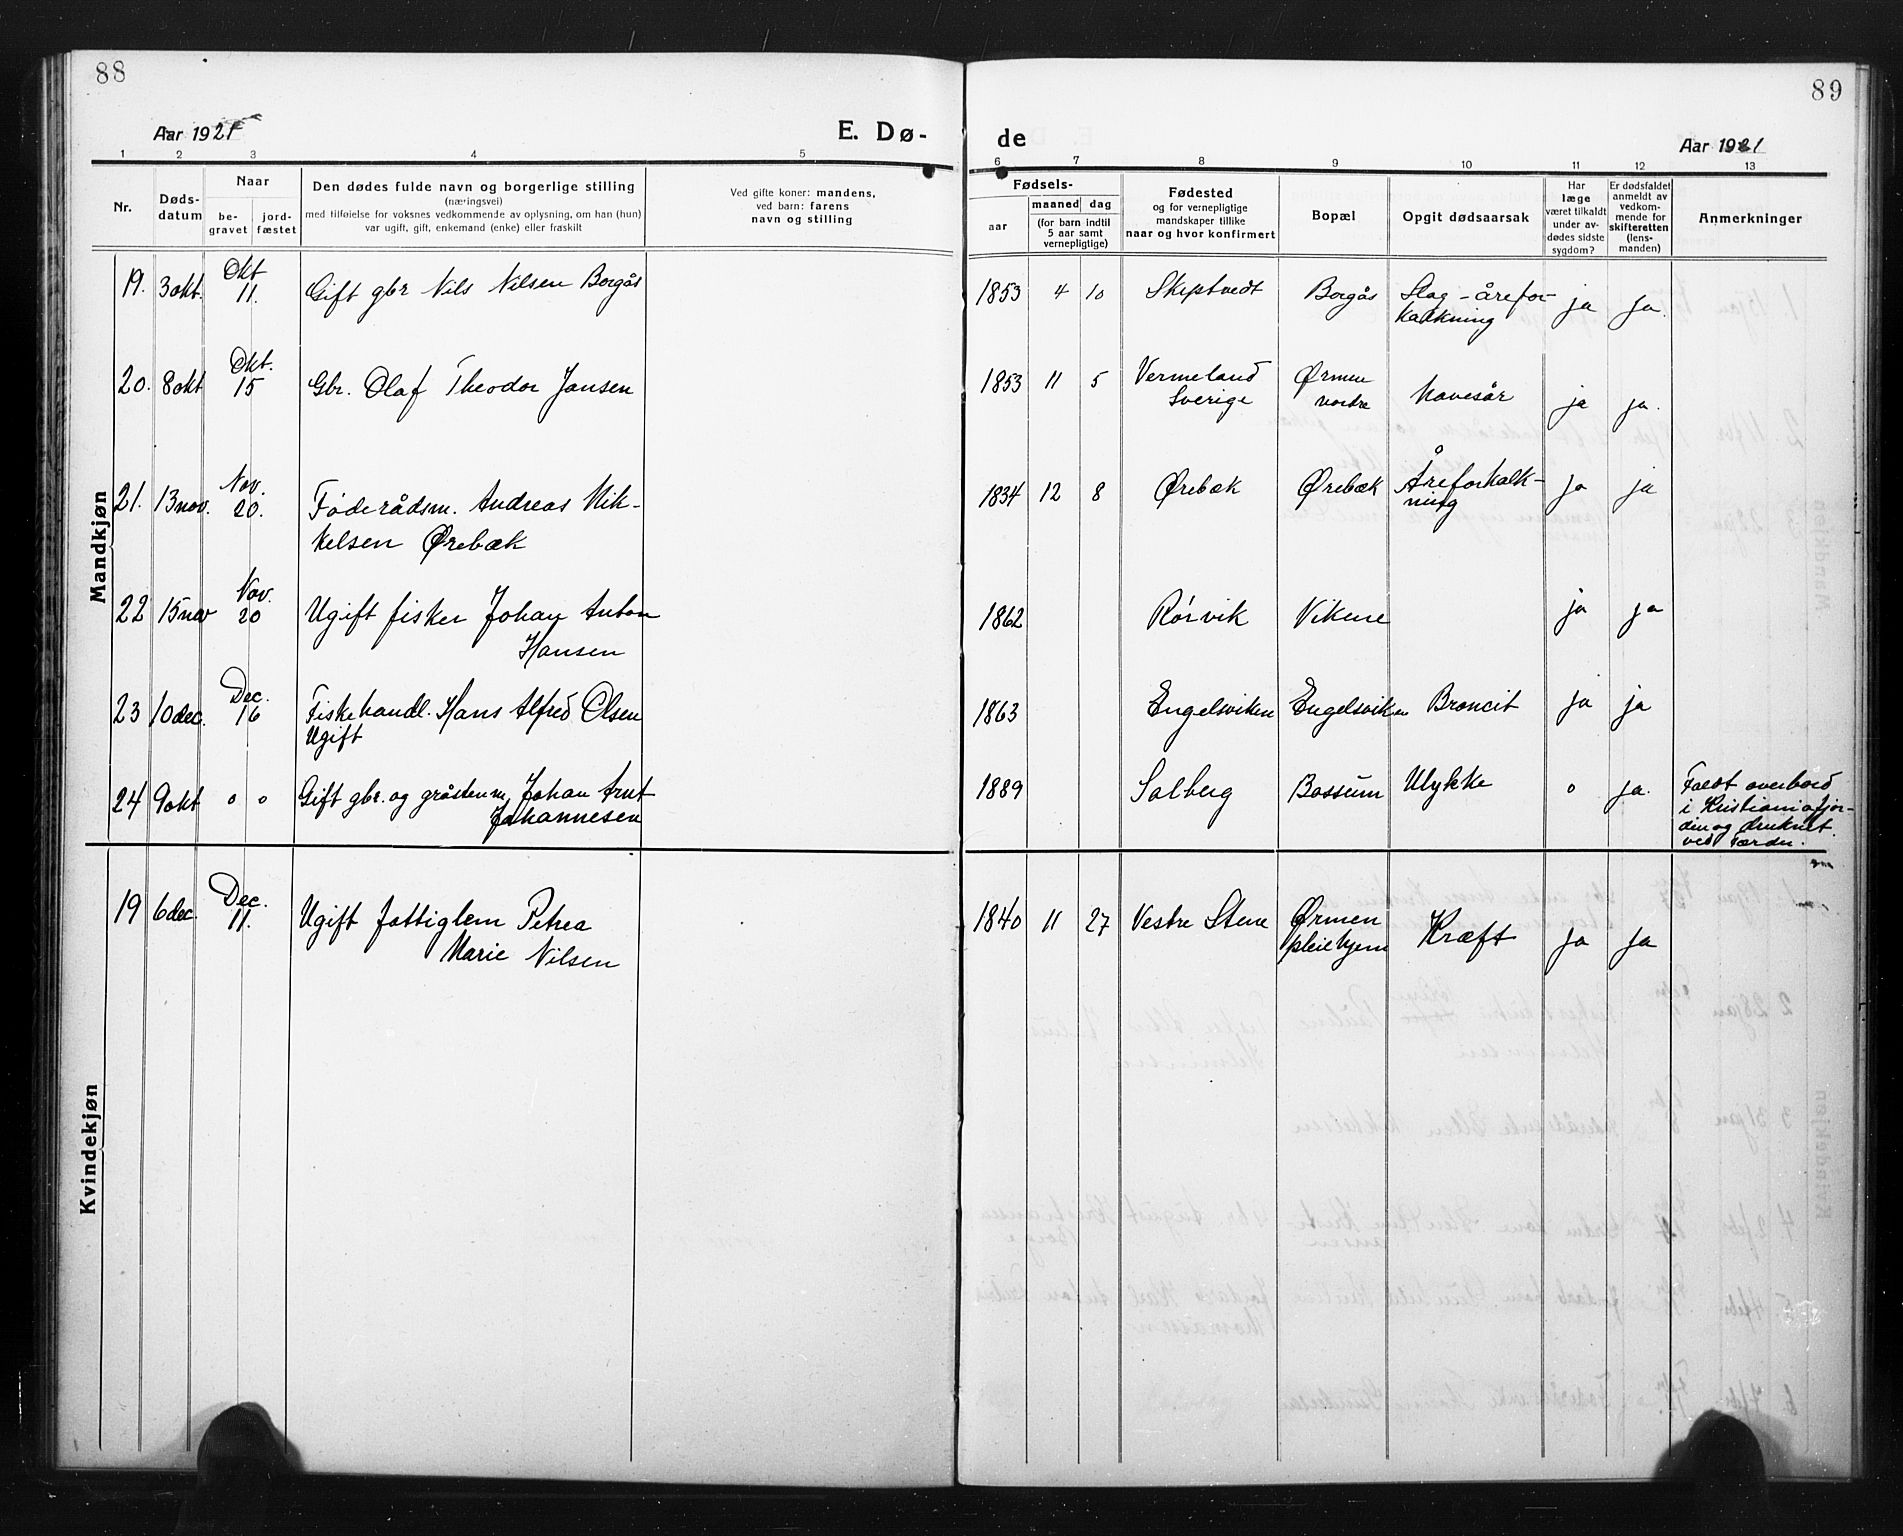 88
Aar 1921
E. Dø-
1 2 3 4 5
Nr.
Døds-
datum
Naar
be-
gravet
jord-
fæstet
Den dødes fulde navn og borgerlige stilling
(næringsvei)
med tilføielse for voksnes vedkommende av oplysning, om han (hun)
var ugift, gift, enkemand (enke) eller fraskilt
Ved gifte koner: mandens,
ved barn: farens
navn og stilling
Mandkjøn
Okt
19. 3 okt. 11. Gift gbr Nils Nilsen Borgås
Okt.
20. 8 okt 15 Gbr. Olaf Theodor Jansen
Nov.
21. 13 nov. 20. Føderådsm. Andreas Mik-
kelsen Ørebæk
Nov.
22 15 nov 20 Ugift fisker Johan Anton
Hansen
Dec.
23 10 dec. 16 Fiskehandl. Hans Alfred Olsen
Ugift
24 9 okt o o Gift gbr. og gråstenm. Johan Arnt
Johannesen
Kvindekjøn
Dec.
19 6 dec. 11. Ugift fattiglem Petrea
Marie Nilsen
89
de
Aar 1921
6 7 8 9 10 11 12 13
Fødsels-
aar
maaned dag
(for barn indtil
5 aar samt
vernepligtige)
Fødested
og for vernepligtige
mandskaper tillike
naar og hvor konfirmert
Bopæl
Opgit dødsaarsak
Har
læge
været tilkaldt
under av-
dødes sidste
sygdom?
Er dødsfaldet
anmeldt av
vedkom-
mende for
skifteretten
(lens-
manden)
Anmerkninger
1853 4 10 Skiptvedt Borgås Slag - årefor-
kalkning ja ja.
1853 11 5 Vermeland
Sverige
Ørmen
nordre
Navesår ja ja.
1834 12 8 Ørebæk Ørebæk Åreforkalk-
ning ja ja
1862 Rørvik Vikene ja ja
1863 Engelsviken Engelsviken Broncit ja ja
1889 Solberg Bossum Ulykke o ja. Faldt overbord
i Kristianiafjor-
den og druknet
ved Færder.
1840 11 27 Vestre Stene Ørmen
pleiehjem
Kræft ja ja